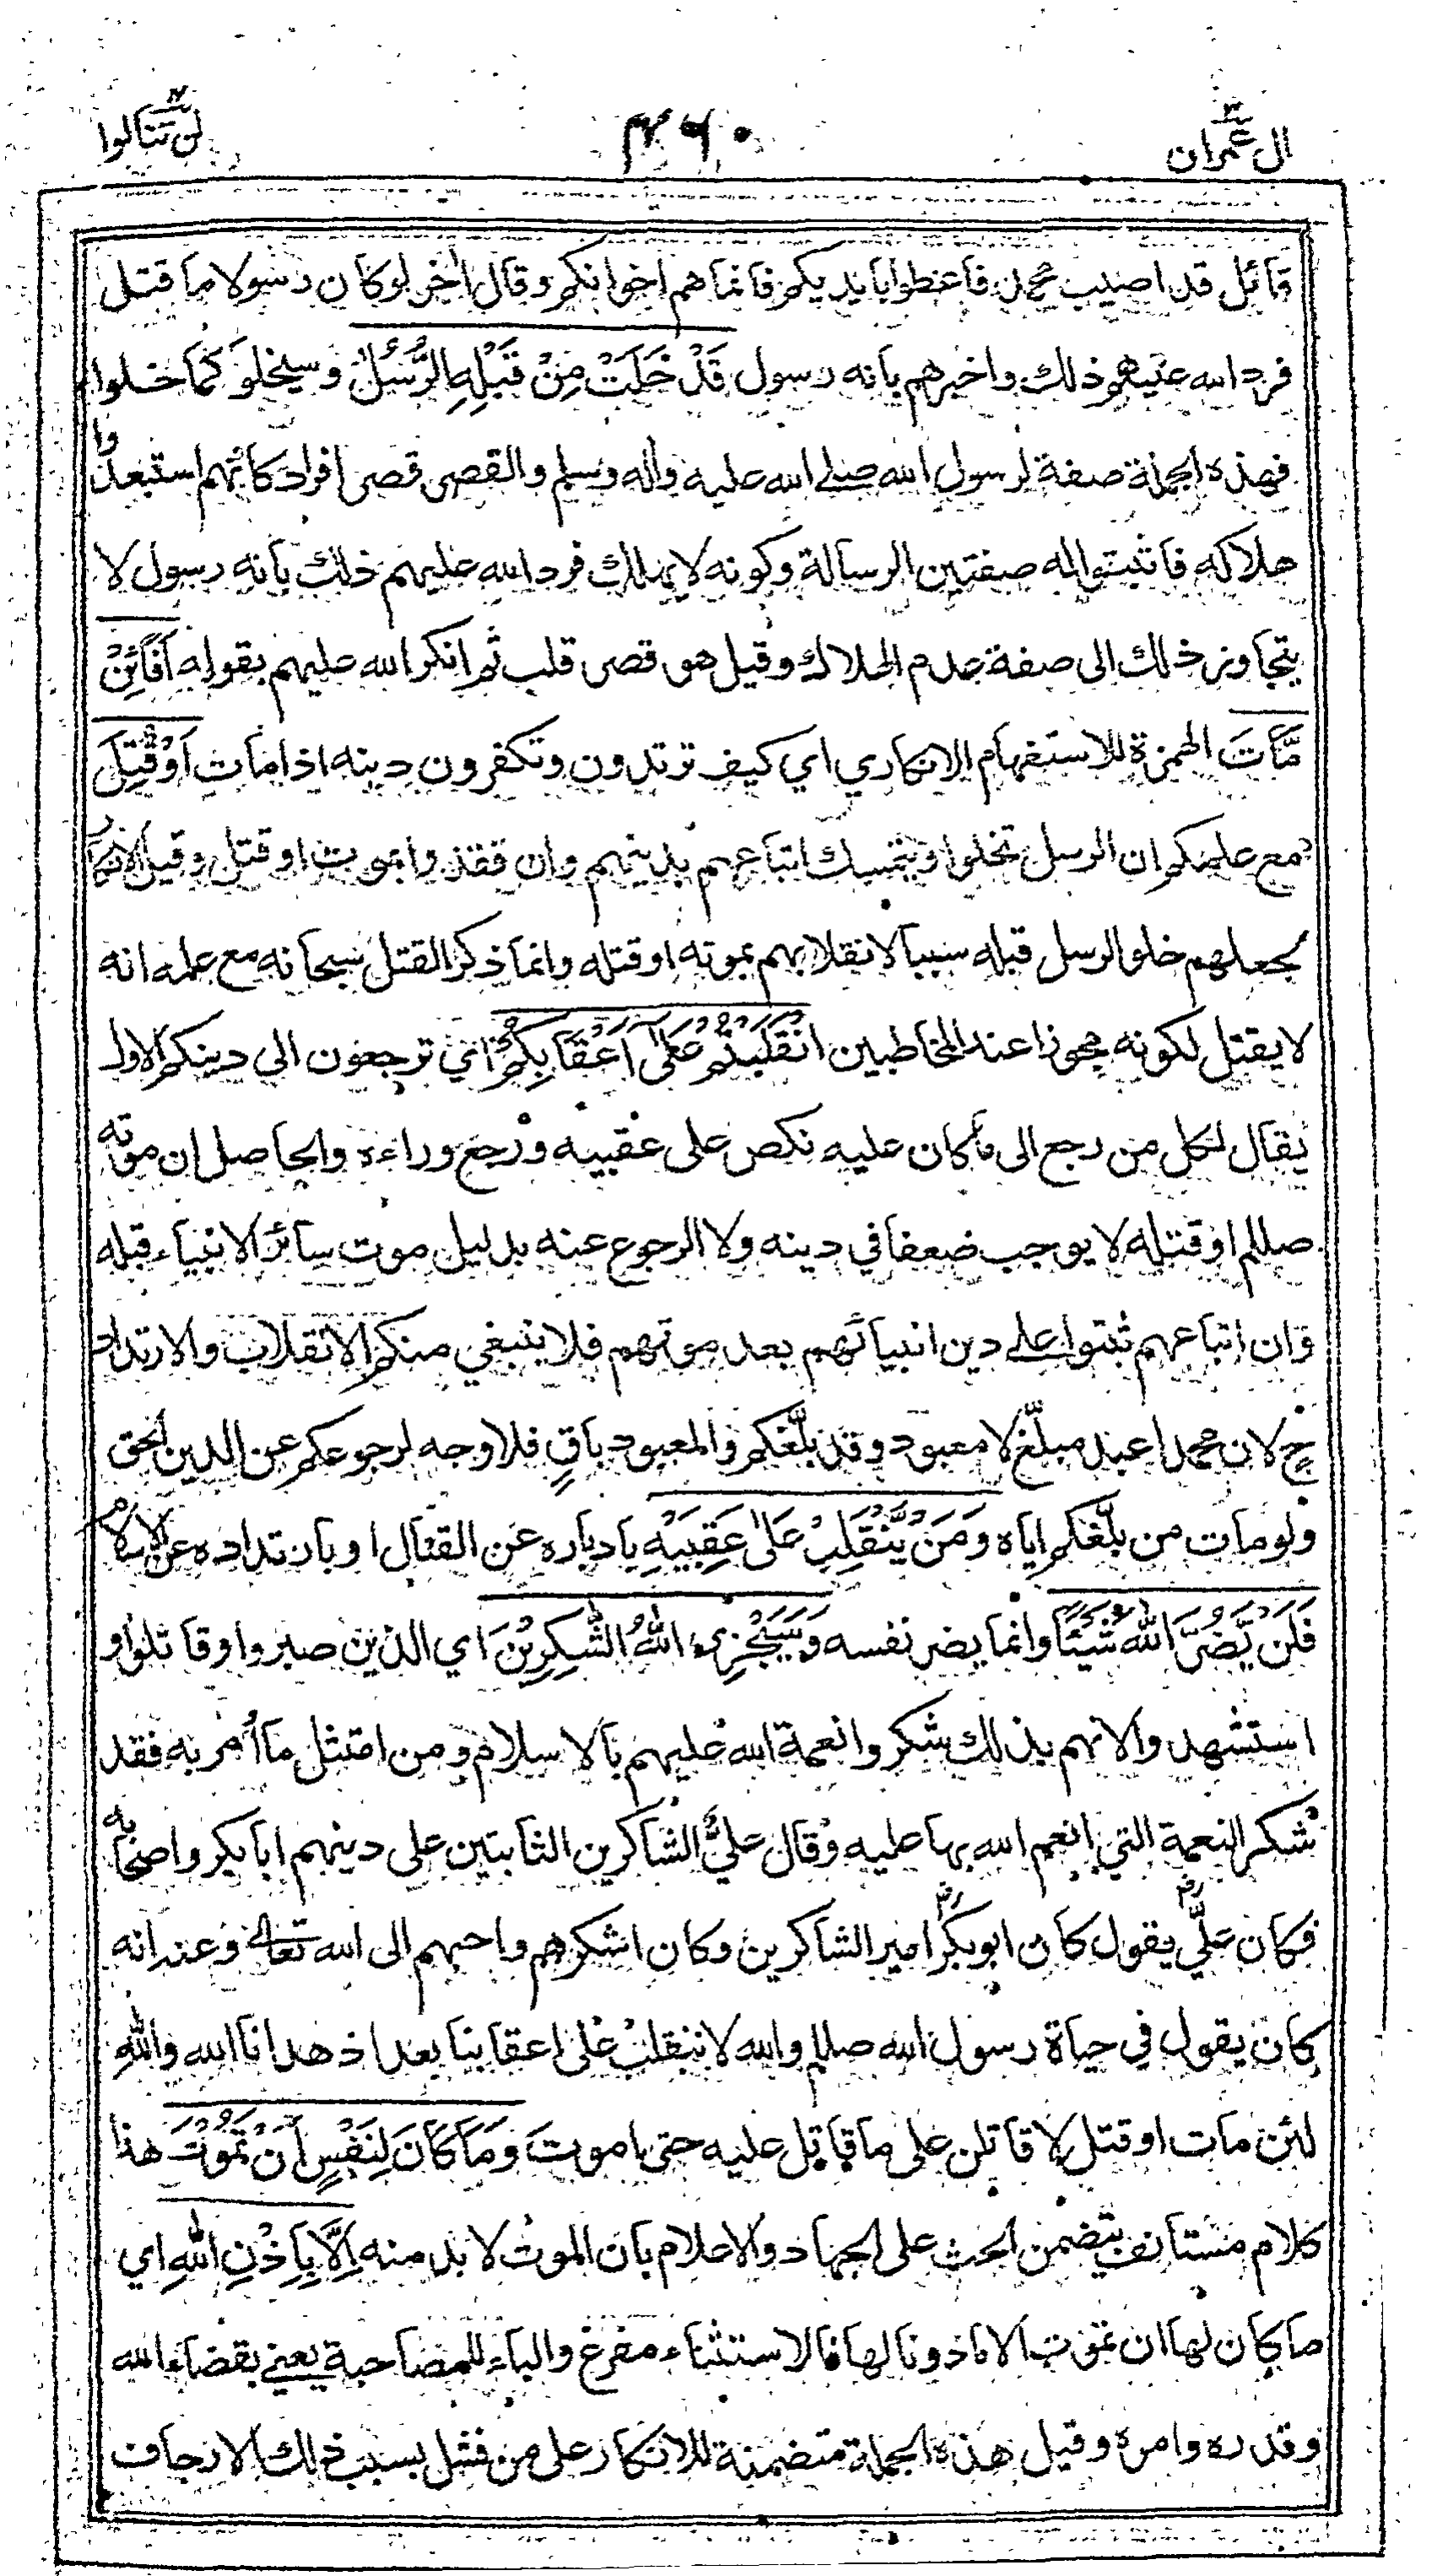 ال عمران ٣
٤٦٠
لن تنالوا ٤
قائل قد اصيب محمد فاعطوا بايديكم فانما هم اخوانكم وقال اٰخر لو كان رسولا ما قتل
فرد الله عليهم ذلك واخبرهم بانه رسول قَدْ خَلَتْ مِنْ قَبْلِهِ الرُّسُلُ وسيخلو كما خلوا
فهذه الجملة صفة لرسول الله صلى الله عليه واٰله وسلم والقصر قصر افراد كانهم استبعدوا
هلاكه فاثبتوا له صفتين الرسالة وكونه لا يهلك فرد الله عليهم ذلك بانه رسول لا
يتجاوز ذلك الى صفة عدم الهلاك وقيل هو قصر قلب ثم انكر الله عليهم بقوله اَفَائِنْ
مَّاتَ الهمزة للاستفهام الانكاري اي كيف ترتدون وتكفرون دينه اذا مات اَوْ قُتِلَ
مع علمكم ان الرسل تخلوا ويتمسك اتباعهم بدينهم وان فقدوا بموت او قتل وقيل الانكار
لجعلهم خلو الرسل قبله سببا لانقلابهم بموته او قتله وانما ذكر القتل سبحانه مع علمه انه
لا يقتل لكونه مجوزا عند المخاطبين انْقَلَبْتُمْ عَلٰى اَعْقَابِكُمْ اي ترجعون الى دينكم الاول
يقال لكل من رجع الى ما كان عليه نكص على عقبيه ورجع وراءه والحاصل ان موته
صللم او قتله لا يوجب ضعفا في دينه ولا الرجوع عنه بدليل موت سائر الانبياء قبله
وان اتباعهم ثبتوا على دين انبيائهم بعد موتهم فلا ينبغي منكم الانقلاب والارتداد
ح لان محمدا عبد مبلّغ لا معبود وقد بلّغكم والمعبود باقٍ فلا وجه لرجوعكم عن الدين الحق
ولو مات من بلّغكم اياه وَمَنْ يَّنْقَلِبْ عَلٰى عَقِبَيْهِ بادباره عن القتال او بارتداده عن الاسلام
فَلَنْ يَّضُرَّ اللّٰهَ شَيْئًا وانما يضر نفسه وَسَيَجْزِى اللّٰهُ الشّٰكِرِيْنَ اي الذين صبروا وقاتلوا و
استشهدوا لانهم بذلك شكروا نعمة الله عليهم بالاسلام ومن امتثل ما اُمر به فقد
شكر النعمة التي انعم الله بها عليه وقال عليٌّ الشاكرين الثابتين على دينهم ابا بكر واصحابه
فكان عليٌّ رض يقول كان ابو بكر رض امير الشاكرين وكان اشكرهم واحبهم الى الله تعالى وعنه انه
كان يقول في حياة رسول الله صللم والله لا ننقلب على اعقابنا بعد اذ هدانا الله والله
لئن مات او قتل لاقاتلن على ما قاتل عليه حتى اموت وَمَا كَانَ لِنَفْسٍ اَنْ تَمُوْتَ هذا
كلام مستانف يتضمن الحث على الجهاد والاعلام بان الموت لا بد منه اِلَّا بِاِذْنِ اللّٰهِ اي
ما كان لها ان تموت الا ماذونا لها فالاستثناء مفرغ والباء للمصاحبة يعني بقضاء الله
وقدره وامره وقيل هذه الجملة متضمنة للانكار على من فشل بسبب ذلك الارجاف